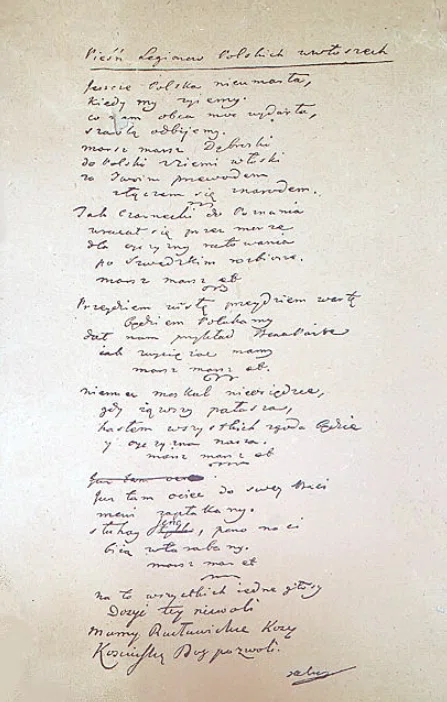 Pieśń Legionow Polskich we włoszech
Jeszcze Polska nieumarła,
kiedy my żyiemy.
co nam obca moc wydarła,
szablą odbijemy.
marsz marsz Dąbroski
do Polski z ziemi włoski
za Twoim przewodem
złączem się znarodem.
Jak Czarnecki do Poznania
wracał się przez morze
dla oyczyzny ratowania
po Szwedzkim rozbiorze.
marsz marsz etc
Przeydziem wisłę przeydziem wartę
będziem Polakamy
dał nam przykład Bonaparte
iak zwycięzac mamy
marsz marsz et.
niemiec moskal nieosiędzie,
gdy iąwszy pałasza,
hasłem wszystkich zgoda będzie
y oyczyzna nasza.
marsz marsz et
Już tam ociec
Już tam ociec do swey Basi
mówi zapłakany.
słuchay ieno, pono nasi
biią w tarabany.
marsz mar et
na to wszystkich iedne głosy
Dosyć tey niewoli
mamy Racławickie Kosy
Kosciuszkę Bog pozwoli.